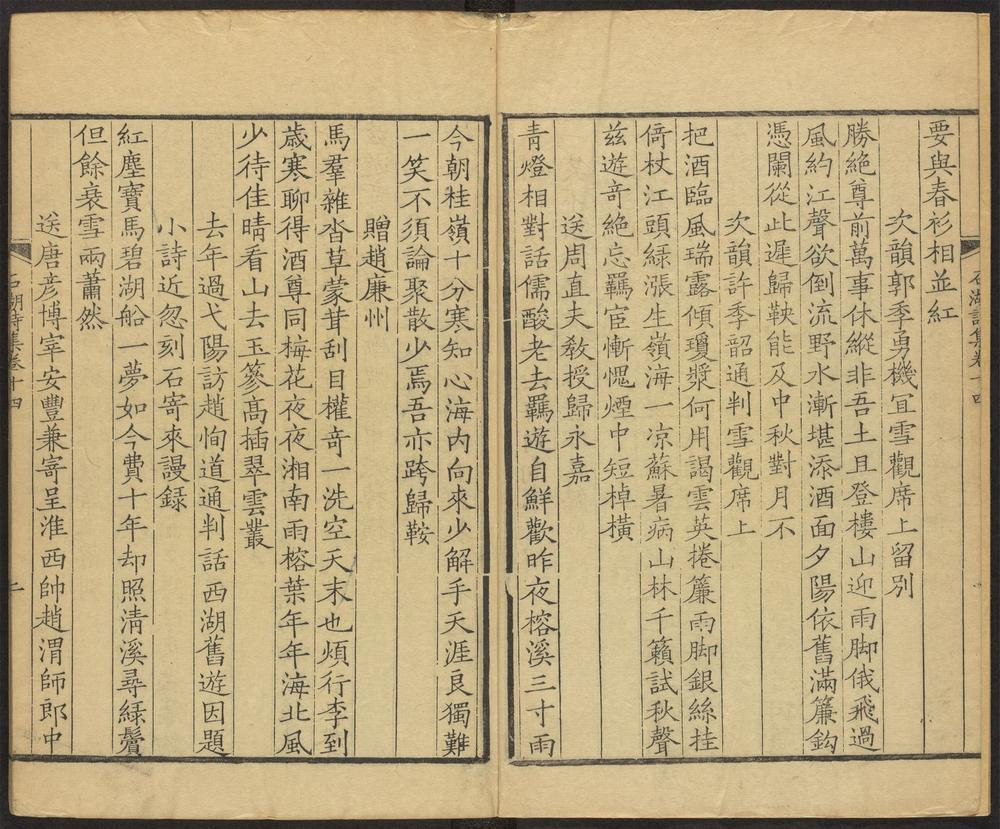 要與春衫相並紅
次韻郭季勇機宜雪觀席上留別
勝絶尊前萬事休縱非吾土且登樓山迎雨脚俄飛過
風約江聲欲倒流野水漸堪添酒面夕陽依舊滿簾鈎
憑闌從此遲歸鞅能及中秋對月不
次韻許季韶通判雪觀席上
把酒臨風瑞露傾瓊漿何用謁雲英捲簾雨脚銀絲挂
倚杖江頭綠漲生嶺海一凉蘇暑病山林千籟試秋聲
兹遊竒絶忘羈宦慚愧煙中短棹橫
送周直夫敎授歸永嘉
青燈相對話儒酸老去羈遊自鮮歡昨夜榕溪三寸雨
今朝桂嶺十分寒知心海内向來少解手天涯良獨難
一笑不須論聚散少焉吾亦跨歸鞍
贈趙廉州
馬羣雜沓草蒙茸刮目權竒一洗空天末也煩行李到
歲寒聊得酒尊同梅花夜夜湘南雨榕葉年年海北風
少待佳晴看山去玉篸髙插翠雲叢
去年過弋陽訪趙恂道通判話西湖舊遊因題
小詩近忽刻石寄來謾録
紅塵寶馬碧湖船一夢如今費十年却照清溪尋綠鬢
但餘衰雪兩蕭然
送唐彦博宰安豐兼寄呈淮西帥趙渭師郎中
石湖詩集卷十四
二